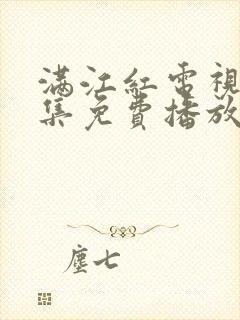 滿江紅電視
集免費播放
塵七